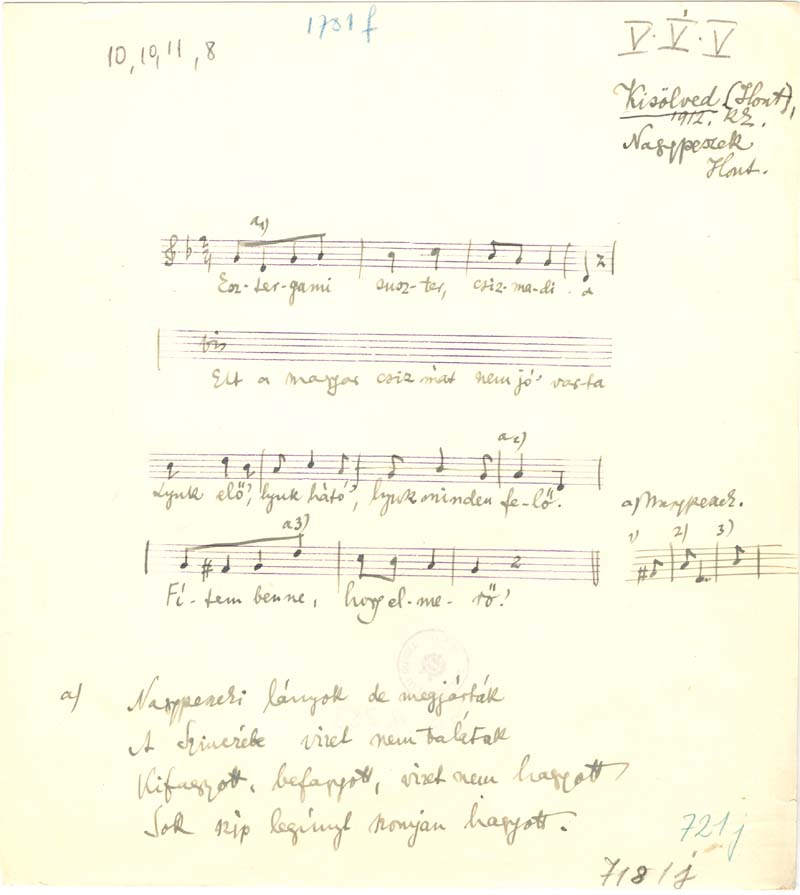 1781 f
10, 10, 11, 8
V. V. V
Kisölved (Hont),
1912. KZ.
Nagypeszek
Hont.
a1)
Esz-ter-gami susz-ter, csiz-ma-di-a
bis
Elt a magyar csizmát nem jó' var-ta
a2)
Lyuk elő', lyuk háto', lyuk minden fe-lő'.
a) Nagypeszek.
a3)
1) 2) 3)
Fí-tem benne, hogy el-me-rő'!
a) Nagypeszeki lányok de megjárták
A vizet nem találtak
Kifagyott, befagyott, vizet nem hagyott
Sok szép legényt hagyott.
721 j
718 / j